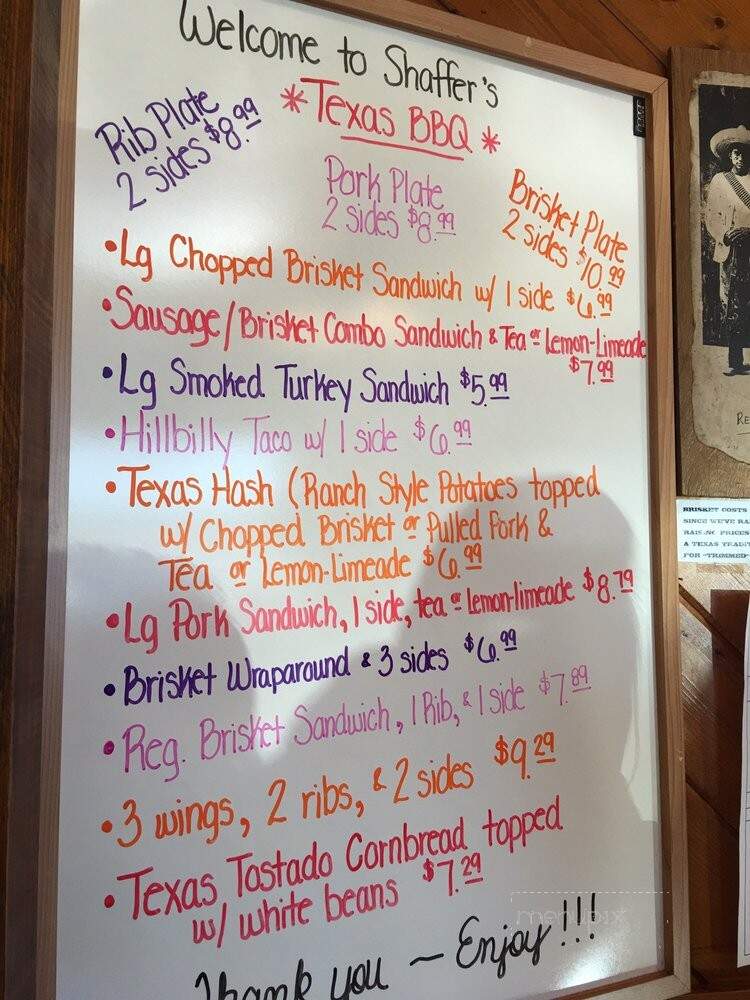 Welcome to Shaffer's
* Texas BBQ *
Rib Plate
2 sides $8.99
Pork Plate
2 sides $8.99
Brisket Plate
2 sides $10.99
• Lg Chopped Brisket Sandwich w/ 1 side $6.99
• Sausage/Brisket Combo Sandwich & Tea or Lemon-Limeade
$7.99
• Lg Smoked Turkey Sandwich $5.99
• Hillbilly Taco w/ 1 side $6.99
• Texas Hash (Ranch Style Potatoes topped
w/ Chopped Brisket or Pulled Pork &
Tea or Lemon-Limeade $6.99
• Lg Pork Sandwich, 1 side, tea or Lemon-limeade $8.79
• Brisket Wraparound & 3 sides $6.99
• Reg. Brisket Sandwich, 1 Rib, & 1 side $7.89
• 3 wings, 2 ribs, & 2 sides $9.29
• Texas Tostado Cornbread topped
w/ white beans $7.29
Thank you ~ Enjoy!!!
menupix
RE
BRISKET COSTS
SINCE WE'VE RA
RAIS-NG PRICES
A TEXAS TRADI
FOR "TRIMMED"